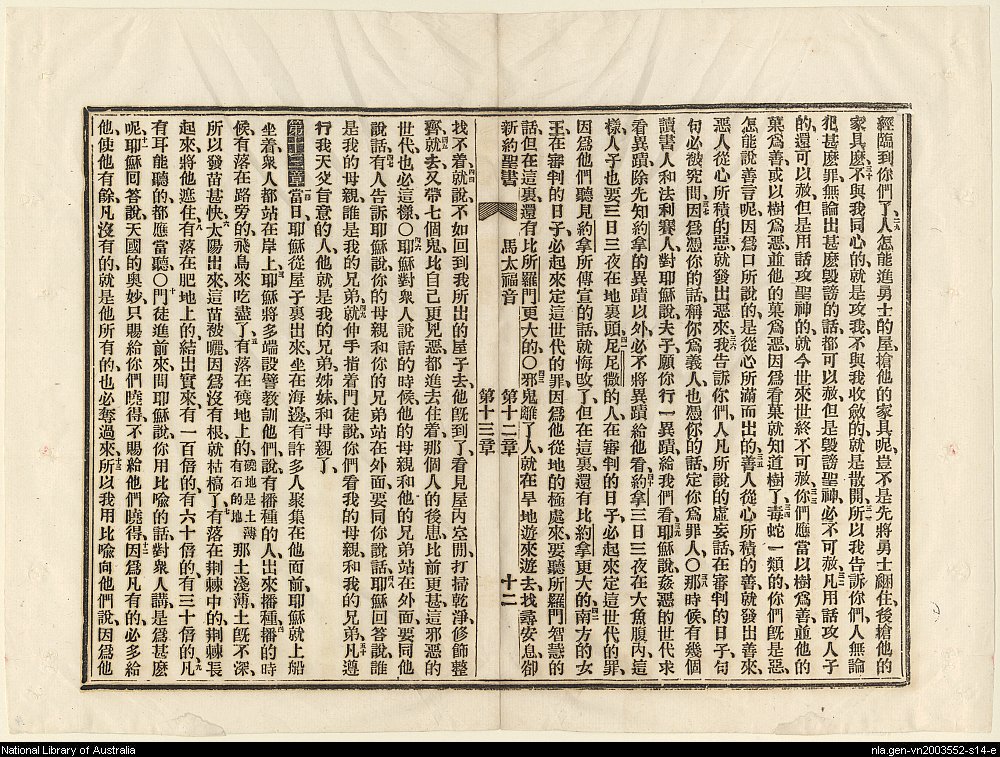 經臨到你們了、二九人怎能進勇士的屋、搶他的家具呢、豈不是先將勇士綑住後、搶他的
家具麼、三十不與我同心的、就是攻我、不與我收斂的、就是散開、三一所以我告訴你們、人無論
犯甚麼罪、無論出甚麼毀謗的話、都可以赦、但是毀謗聖神、必不可赦、三二凡用話攻人子
的、還可以赦、但是用話攻聖神的、就今世來世、終不可赦、三三你們應當以樹爲善、並他的
菓爲善、或以樹爲惡、並他的菓爲惡、因爲看菓就知道樹了、三四毒蛇一類的、你們旣是惡、
怎能說善言呢、因爲口所說的、是從心所滿而出的、三五善人從心所積的善、就發出善來、
惡人從心所積的惡、就發出惡來、三六我告訴你們、人凡所說的虛妄話、在審判的日子、句
句必被究問、三七因爲憑你的話、稱你爲義人、也憑你的話、定你爲罪人、〇三八那時候、有幾個
讀書人、和法利賽人、對耶穌說、夫子、願你行一異蹟給我們看、三九耶穌說、姦惡的世代、求
看異蹟、除先知約拿的異蹟以外、必不將異蹟給他看、四十約拿三日三夜、在大魚腹內、這
樣、人子也要三日三夜、在地裏頭、四一尼尼微的人、在審判的日子、必起來定這世代的罪、
因爲他們聽見約拿所傳宣的話、就悔改了、但在這裏、還有比約拿更大的、四二南方的女
王、在審判的日子、必起來定這世代的罪、因爲他從地的極處來、要聽所羅門智慧的
話、但在這裏、還有比所羅門更大的、〇四三邪鬼離了人、就在旱地遊來遊去、找尋安息、卻
新約聖書 馬太福音 第十二章 十二
第十三章
找不着、四四就說、不如回到我所出的屋子去、他旣到了、看見屋內空閒、打掃乾淨、修飾整
齊、四五就去又帶七個鬼、比自己更兇惡、都進去住着、那個人的後患、比前更甚、這邪惡的
世代、也必這樣、〇四六耶穌對衆人說話的時候、他的母親、和他的兄弟、站在外面、要同他
說話、四七有人告訴耶穌說、你的母親、和你的兄弟、站在外面、要同你說話、四八耶穌回答說、誰
是我的母親、誰是我的兄弟、四九就伸手指着門徒說、你們看我的母親、和我的兄弟、五十凡遵
行我天父旨意的人、他就是我的兄弟、姊妹、和母親了、
第十三章 一當日、耶穌從屋子裏出來、坐在海邊、二有許多人聚集在他面前、耶穌就上船
坐着、衆人都站在岸上、三耶穌將多端設譬教訓他們說、有播種的人、出來播種、四播的時
候、有落在路旁的、飛鳥來吃盡了、五有落在磽地上的、磽地是土薄有石的地 那土淺薄、土旣不深、
所以發苗甚快、六太陽出來、這苗被曬、因爲沒有根、就枯槁了、七有落在荆棘中的、荆棘長
起來、將他遮住、八有落在肥地上的、結出實來、有一百倍的、有六十倍的、有三十倍的、九凡
有耳能聽的、都應當聽、〇十門徒進前來、問耶穌說、你用比喩的話、對衆人講、是爲甚麼
呢、十一耶穌回答說、天國的奧妙、只賜給你們曉得、不賜給他們曉得、十二因爲凡有的、必多給
他、使他有餘、凡沒有的、就是他所有的、也必奪過來、十三所以我用比喩向他們說、因爲他
National Library of Australia
nla.gen-vn2003552-s14-e